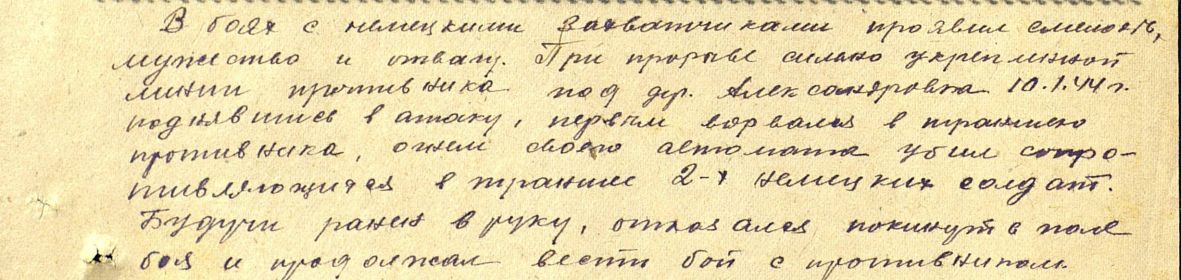 В боях с немецкими захватчиками проявил смелость,
мужество и отвагу. При прорыве сильно укрепленной
линии противника под дер. Александровка 10.1.44 г.
поднявшись в атаку, первым ворвался в траншею
противника, огнем своего автомата убил сопро-
тивляющихся в траншее 2-х немецких солдат.
Будучи ранен в руку, отказался покинуть поле
боя и продолжал вести бой с противником.